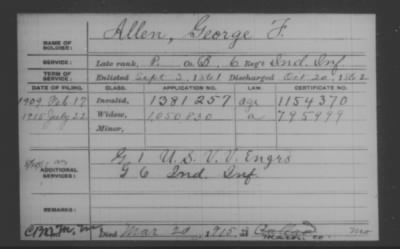 Allen, George F.
NAME OF SOLDIER:
SERVICE: Late rank, P. Co. B. 6 Reg't Ind. Inf.
TERM OF SERVICE: Enlisted Sept. 3, 1861 Discharged Oct. 20, 1862
DATE OF FILING. CLASS. APPLICATION NO. LAW. CERTIFICATE NO.
1909 Feb. 17 Invalid, 1381257 age 1154370
1915 July 22 Widow, 1050830 a 795999
Minor,
ADDITIONAL SERVICES: G 1 U.S.V.V. Engrs
G 6 Ind. Inf.
REMARKS:
Died Mar 20, 1915, at Mo